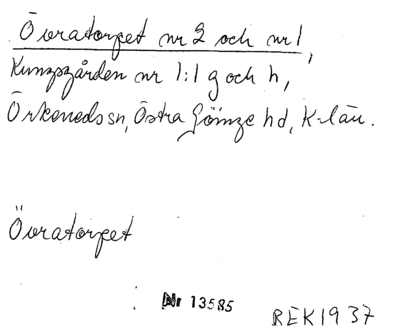 Övratorpet nr 2 och nr 1,
Kungsgården nr 1:1 g och h,
Örkeneds sn, Östra Göinge hd, K-län.
Övratorpet
Nr 13585
REK1937